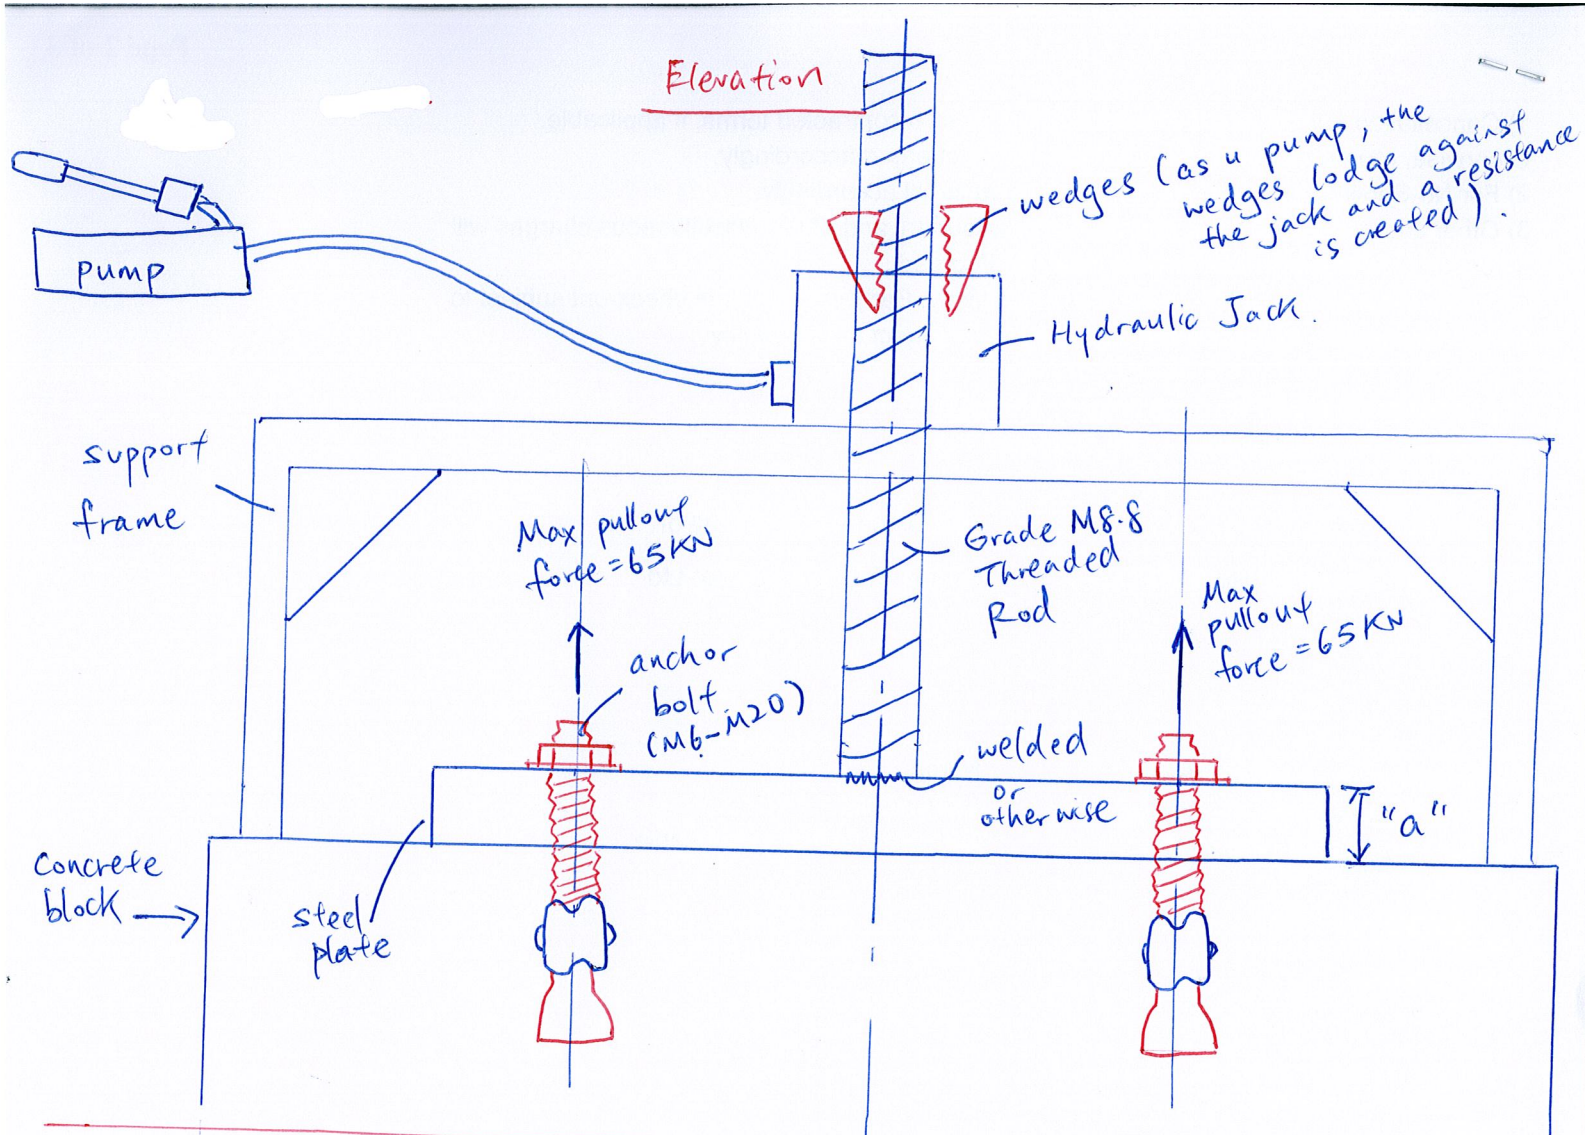 Elevation
wedges (as u pump, the
wedges lodge against
the jack and a resistance
is created).
pump
Hydraulic Jack.
support
frame
Max pullout
force = 65KN
Grade M8.8
Threaded
Rod
Max
pullout
force = 65KN
anchor
bolt
(M6-M20)
welded
or
otherwise
"a"
Concrete
block
steel
plate